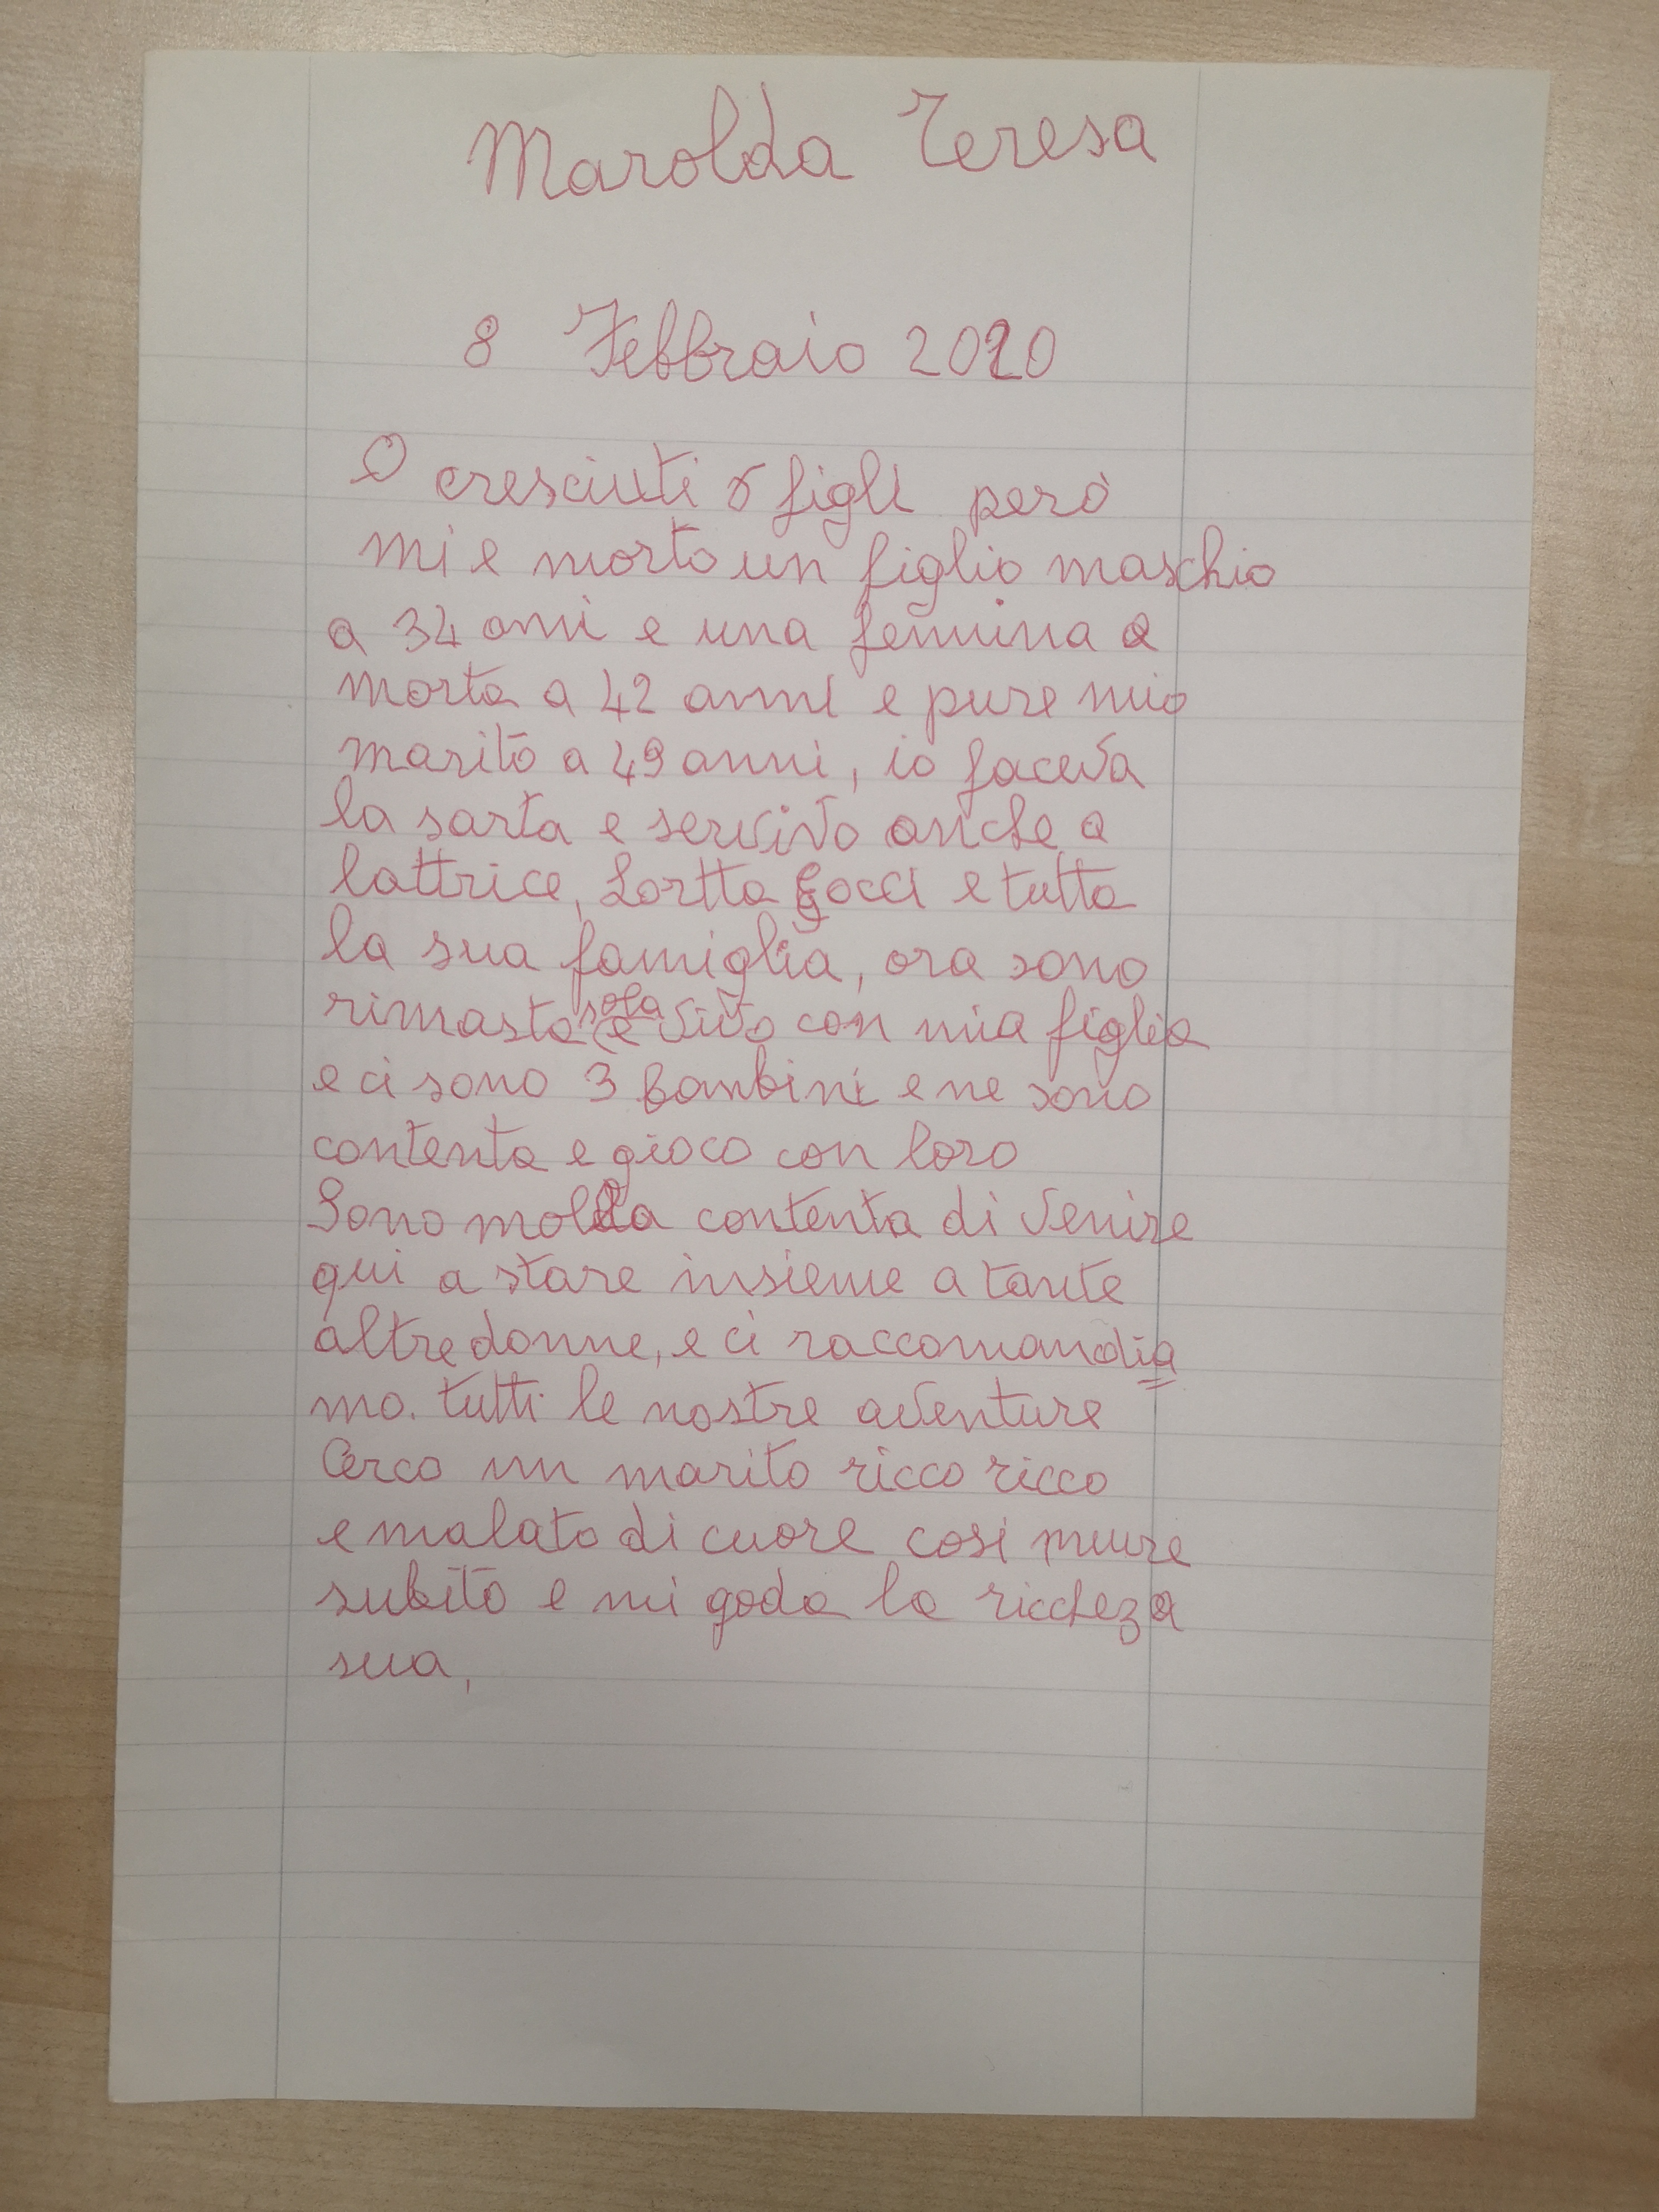 Marolda Teresa
8 Febbraio 2020
O cresciuti figli però
mi e morto un figlio maschio
a 34 anni e una femmina a
morta a 42 anni e pure mio
marito a 49 anni, io faceva
la sarta e servivo anche a
lattrice, Lortta Gocci e tutta
la sua famiglia, ora sono
rimasta sola e vivo con mia figlia
e ci sono 3 bambini e ne sono
contenta e gioco con loro
Sono molda contenta di venire
qui a stare insieme a tante
altre donne, e ci raccomandia
mo. tutti le nostre aventure
Cerco un marito ricco ricco
e malato di cuore cosi muure
subito e mi goda la riccheza
sua,